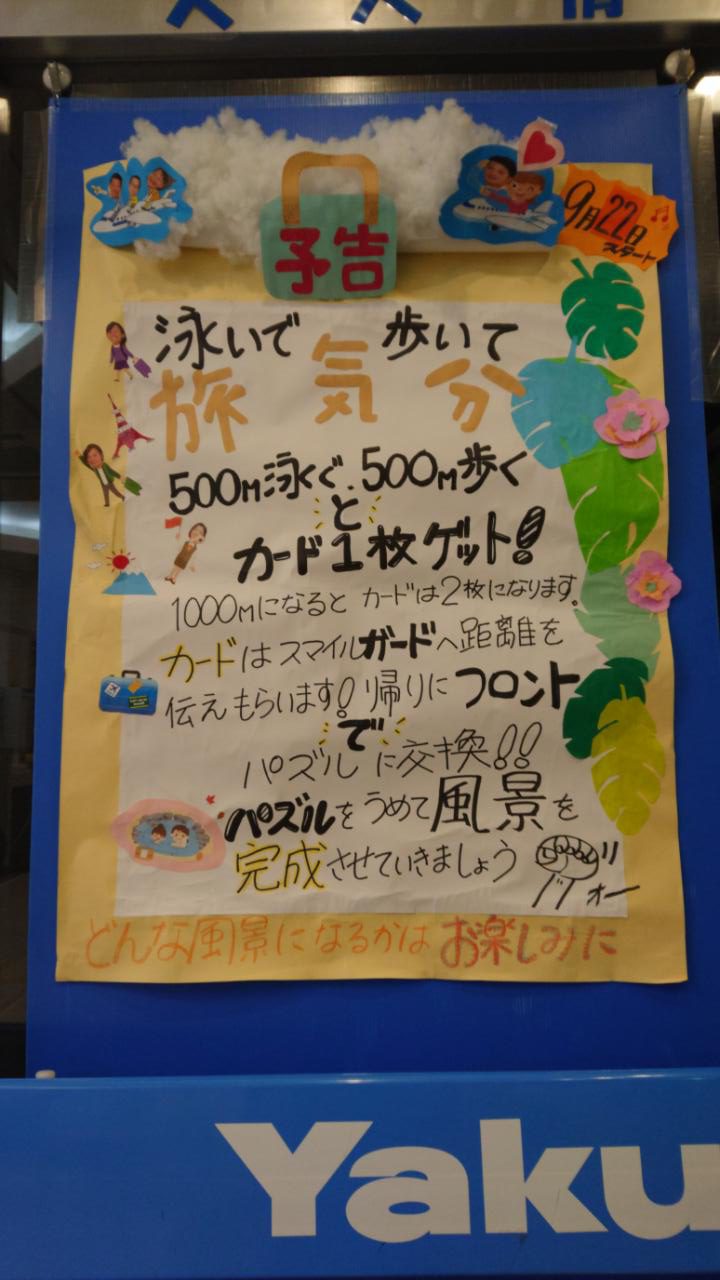 予告
9月22日
スタート
泳いで 歩いて
旅気分
500M泳ぐ.500M歩く
と
カード1枚ゲット!
1000Mになると カードは2枚になります。
カードはスマイルガードへ距離を
伝えもらいます!帰りにフロント
で
パズルに交換!!
パズルをうめて風景を
完成させていきましょう
オー
どんな風景になるかは お楽しみに
Yaku